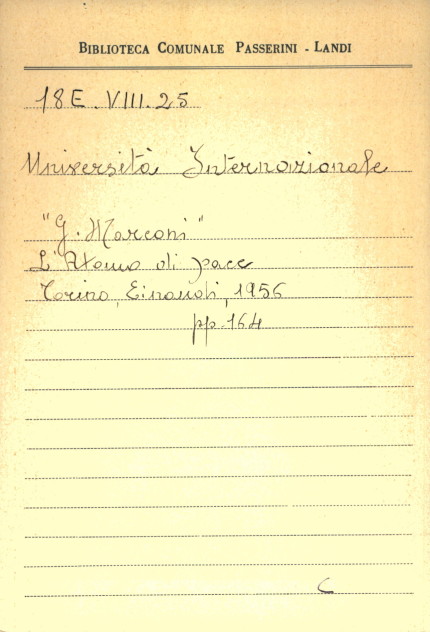 BIBLIOTECA COMUNALE PASSERINI - LANDI
18E. VIII. 25
Università Internazionale
"G. Marconi"
L'Atomo di pace
Torino, Einaudi, 1956
pp. 164
C